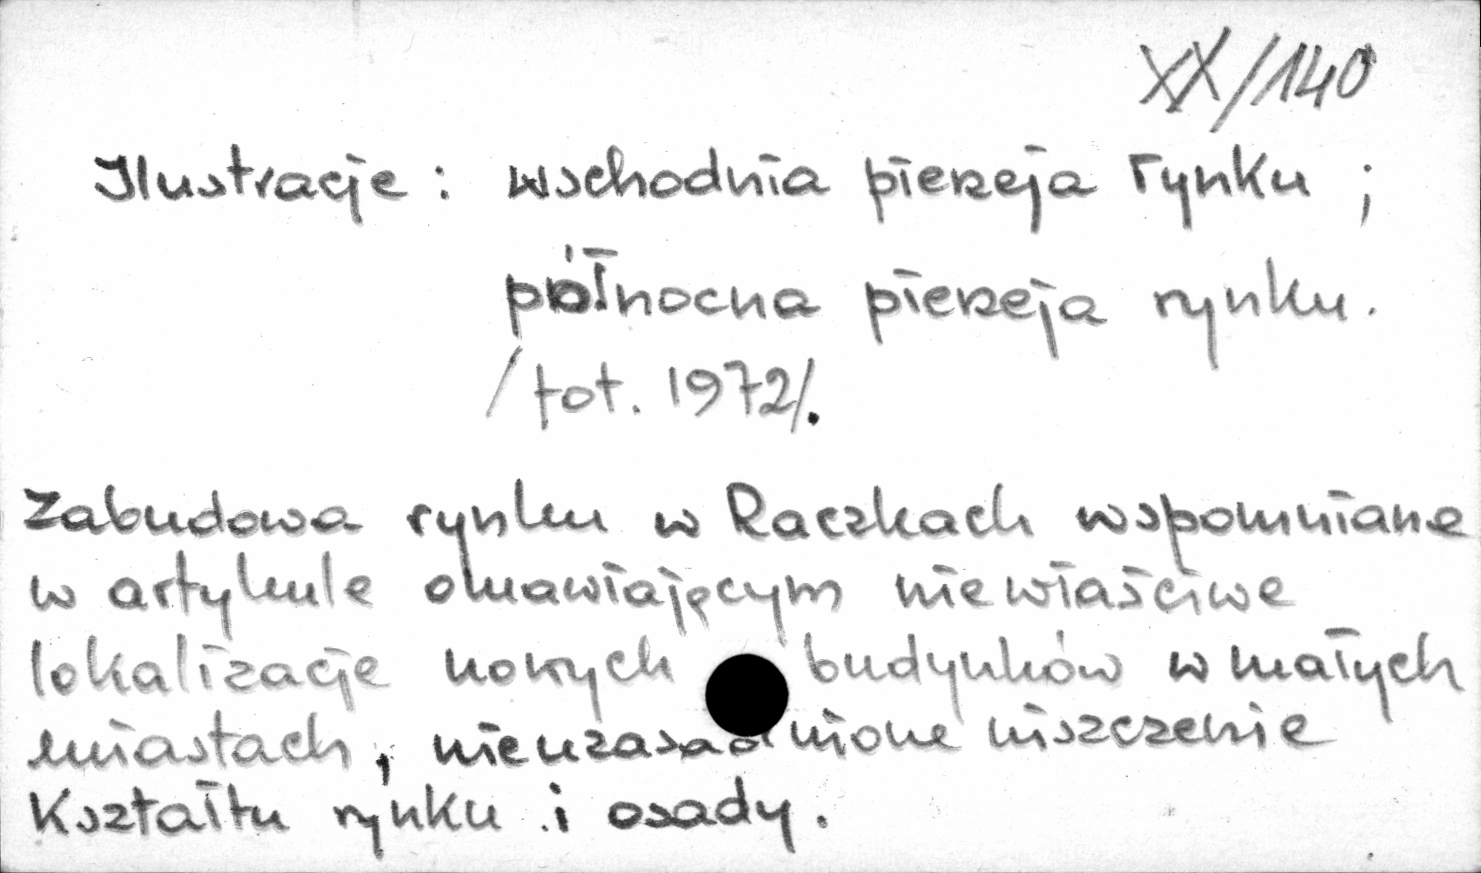 XX/140
Ilustracje : wschodnia pierzeja rynku ;
północna pierzeja rynku.
/fot. 1972/.
Zabudowa rynku w Raczkach wspomniana
w artykule omawiającym niewłaściwe
lokalizacje nowych budynków w małych
miastach, nieuzasadnione niszczenie
Kształtu rynku i osady.